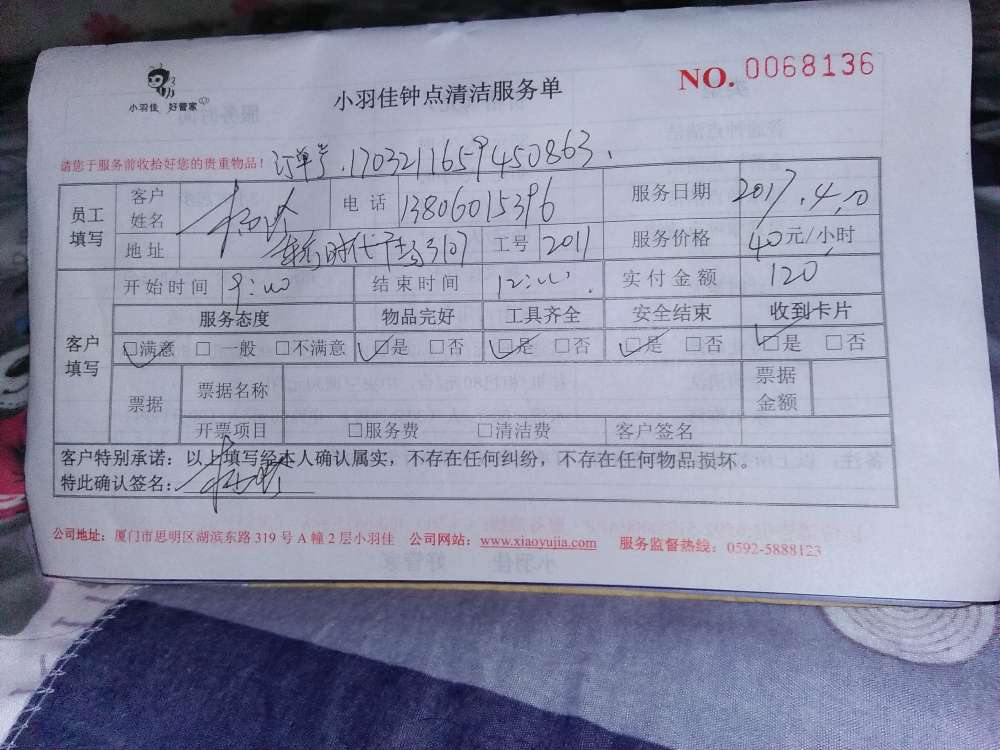 小羽佳 好管家
小羽佳钟点清洁服务单
NO. 0068136
请您于服务前收拾好您的贵重物品！ 订单号.1703211659450863.
员工填写 客户姓名 电话 13806015396 服务日期 2017.4.10
地址 时代广场3107 工号 2011 服务价格 40元/小时
客户填写 开始时间 9:00 结束时间 12:00. 实付金额 120
服务态度 物品完好 工具齐全 安全结束 收到卡片
□满意 □一般 □不满意 □是 □否 □是 □否 □是 □否 □是 □否
票据 票据名称 票据金额
开票项目 □服务费 □清洁费 客户签名
客户特别承诺：以上填写经本人确认属实，不存在任何纠纷，不存在任何物品损坏。
特此确认签名：
公司地址：厦门市思明区湖滨东路 319 号 A 幢 2 层小羽佳 公司网站：www.xiaoyujia.com 服务监督热线：0592-5888123